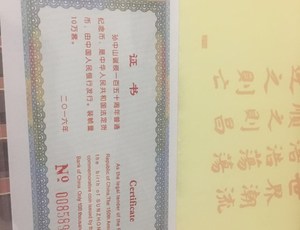 证书
孙中山诞辰一百五十周年普通
纪念币，是中华人民共和国法定货
币，由中国人民银行发行。装帧量
10万套。
二〇一六年
Certificate
As the legal tender of the
Republic of China, The 150th
the birth of SUN
commemorative coin issued by
Bank of China. Only 100
Nº 008589
世界潮流
浩浩蕩蕩
順之則昌
逆之則亡